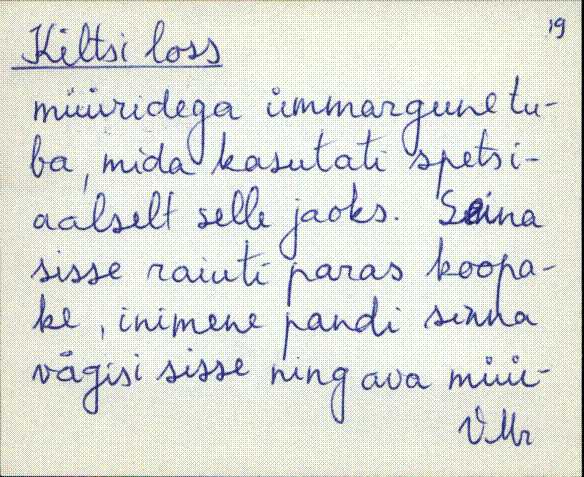 19
Kiltsi loss
müüridega ümmargune tu-
ba, mida kasutati spetsi-
aalselt selle jaoks. Seina
sisse raiuti paras koopa-
ke, inimene pandi sinna
vägisi sisse ning ava müü-
VMr